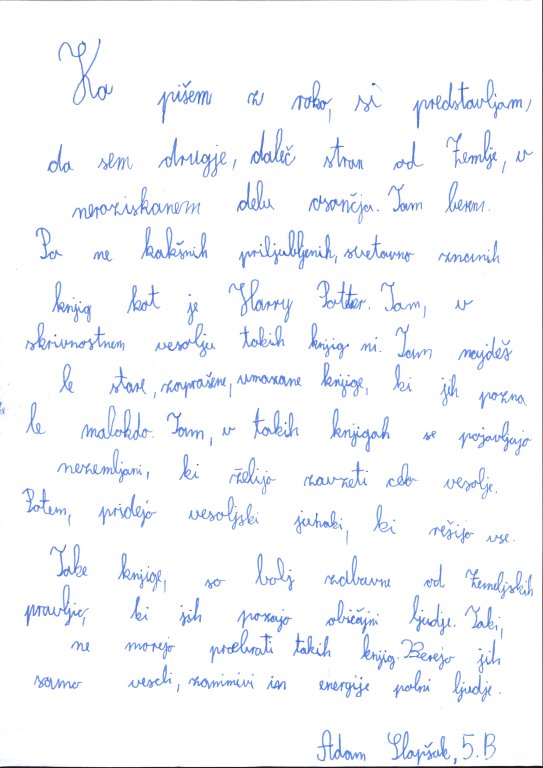 Ko pišem z roko, si predstavljam,
da sem drugje, daleč stran od Zemlje, v
neraziskanem delu osončja. Tam berem.
Pa ne kakšnih priljubljenih, svetovno znanih
knjig kot je Harry Potter. Tam, v
skrivnostnem vesolju takih knjig ni. Tam najdeš
le stare, zaprašene, umazane knjige, ki jih pozna
le malokdo. Tam, v takih knjigah se pojavljajo
nezemljani, ki želijo zavzeti celo vesolje.
Potem, pridejo vesoljski junaki, ki rešijo vse.
Take knjige, so bolj zabavne od Zemeljskih
pravljic, ki jih poznajo običajni ljudje. Taki,
ne morejo prebrati takih knjig. Berejo jih
samo veseli, zanimivi in energije polni ljudje.
Adam Slapšak, 5.B